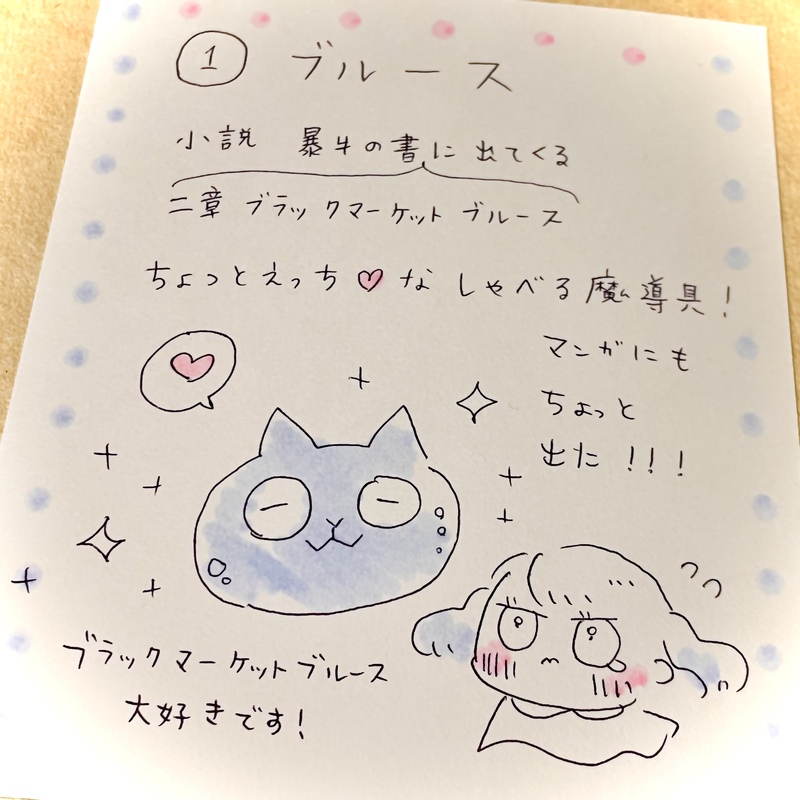 ① ブルース
小説 暴牛の書に出てくる
二章 ブラックマーケット ブルース
ちょっとえっち♡な しゃべる魔導具!
マンガにも
ちょっと
出た!!!
ブラックマーケットブルース
大好きです!